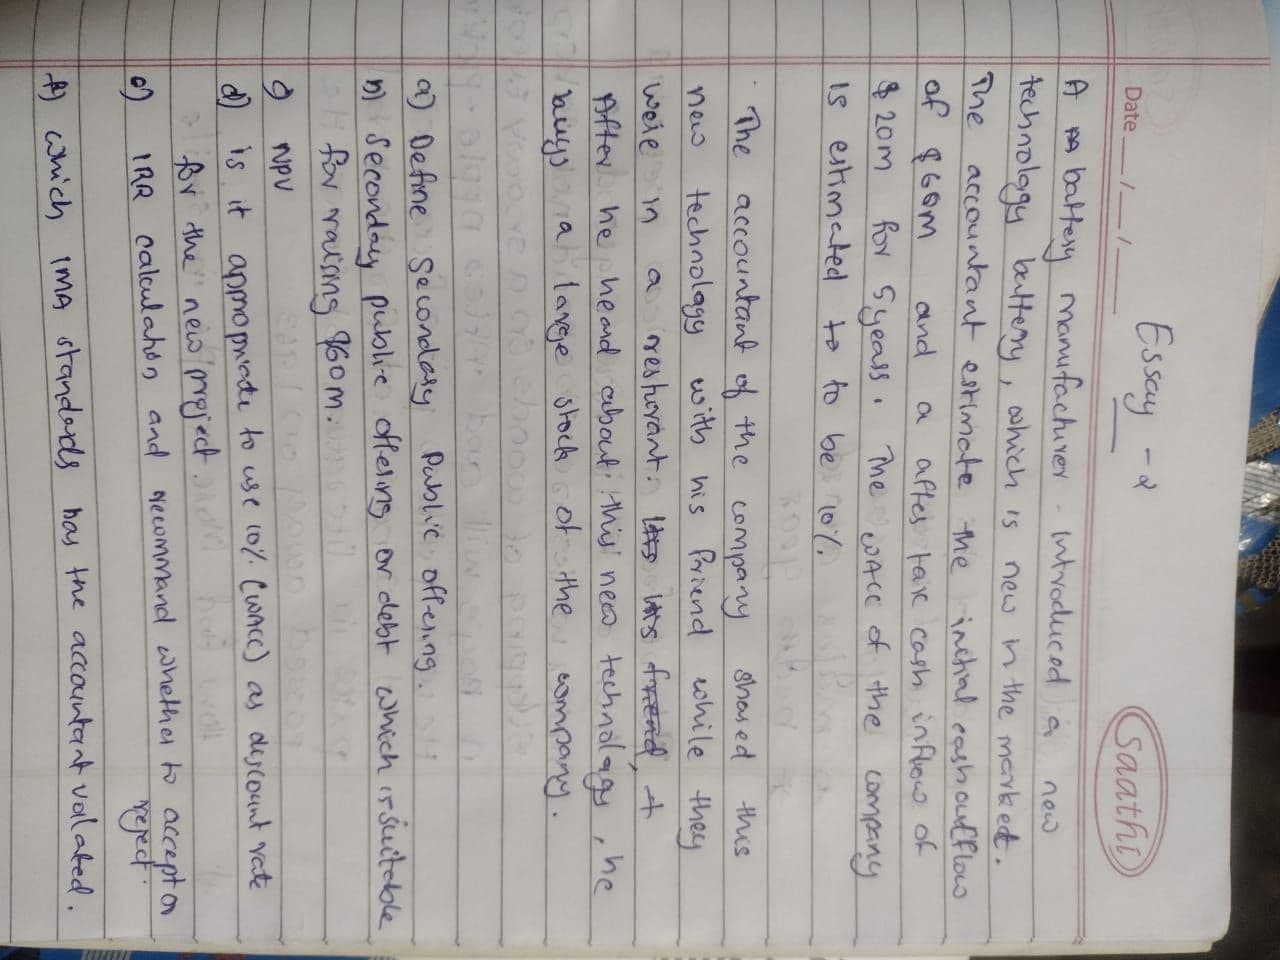 Essay - 2
Date __/__/____
Saathi
A battery manufacturer introduced a new
technology battery, which is new in the market.
The accountant estimate the initial cash outflow
of $60M and a after tax cash inflow of
$20M for 5 years. The WACC of the company
is estimated to to be 10%.
The accountant of the company shared this
new technology with his friend while they
were in a resturant. His his friend, +
After he heard about this new technology, he
buys a large stock of the company.
a) Define Secondary Public offering.
b) Seconday public offering or debt which is suitable
for raising $60M.
c) NPV
d) is it appropriate to use 10% (WACC) as discount rate
for the new project.
e) IRR calculation and recommand whether to accept or
reject.
f) which IMA standards has the accountant volated.